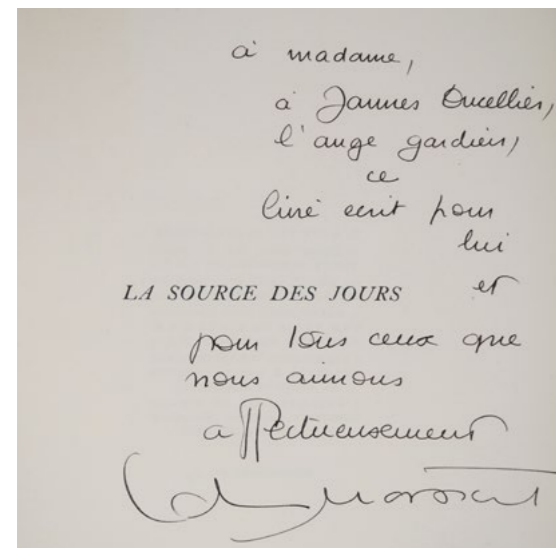 à madame,
à Jannes Ducellier,
l'ange gardien,
ce
livre écrit pour
lui
et
LA SOURCE DES JOURS
pour tous ceux que
nous aimons
affectueusement